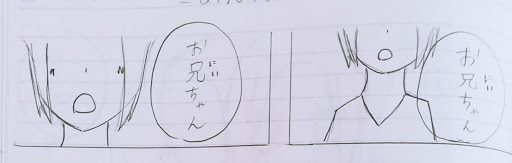 お兄ちゃん
にい
お兄ちゃん
にい